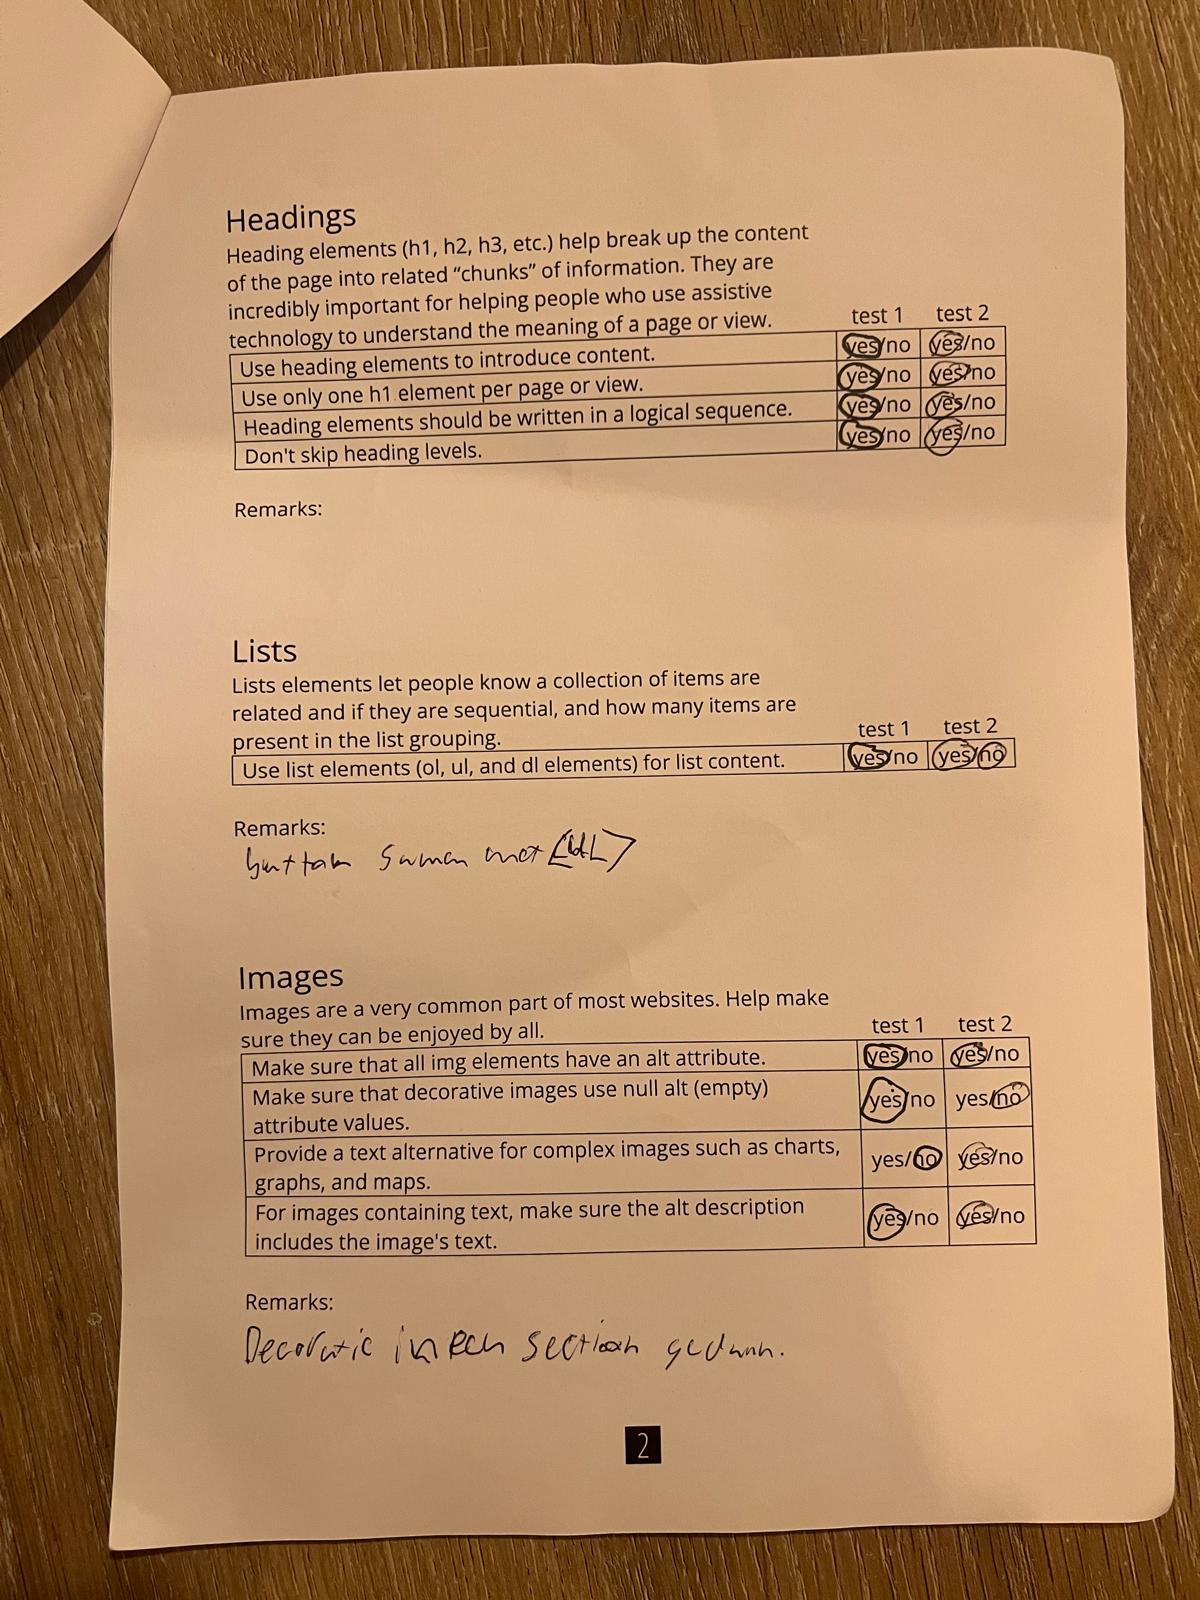 Headings
Heading elements (h1, h2, h3, etc.) help break up the content
of the page into related “chunks” of information. They are
incredibly important for helping people who use assistive
technology to understand the meaning of a page or view.
test 1 test 2
Use heading elements to introduce content. yes/no yes/no
Use only one h1 element per page or view. yes/no yes/no
Heading elements should be written in a logical sequence. yes/no yes/no
Don't skip heading levels. yes/no yes/no
Remarks:
Lists
Lists elements let people know a collection of items are
related and if they are sequential, and how many items are
present in the list grouping.
test 1 test 2
Use list elements (ol, ul, and dl elements) for list content. yes/no yes/no
Remarks:
Images
Images are a very common part of most websites. Help make
sure they can be enjoyed by all.
test 1 test 2
Make sure that all img elements have an alt attribute. yes/no yes/no
Make sure that decorative images use null alt (empty)
attribute values. yes/no yes/no
Provide a text alternative for complex images such as charts,
graphs, and maps. yes/no yes/no
For images containing text, make sure the alt description
includes the image's text. yes/no yes/no
Remarks:
section
2